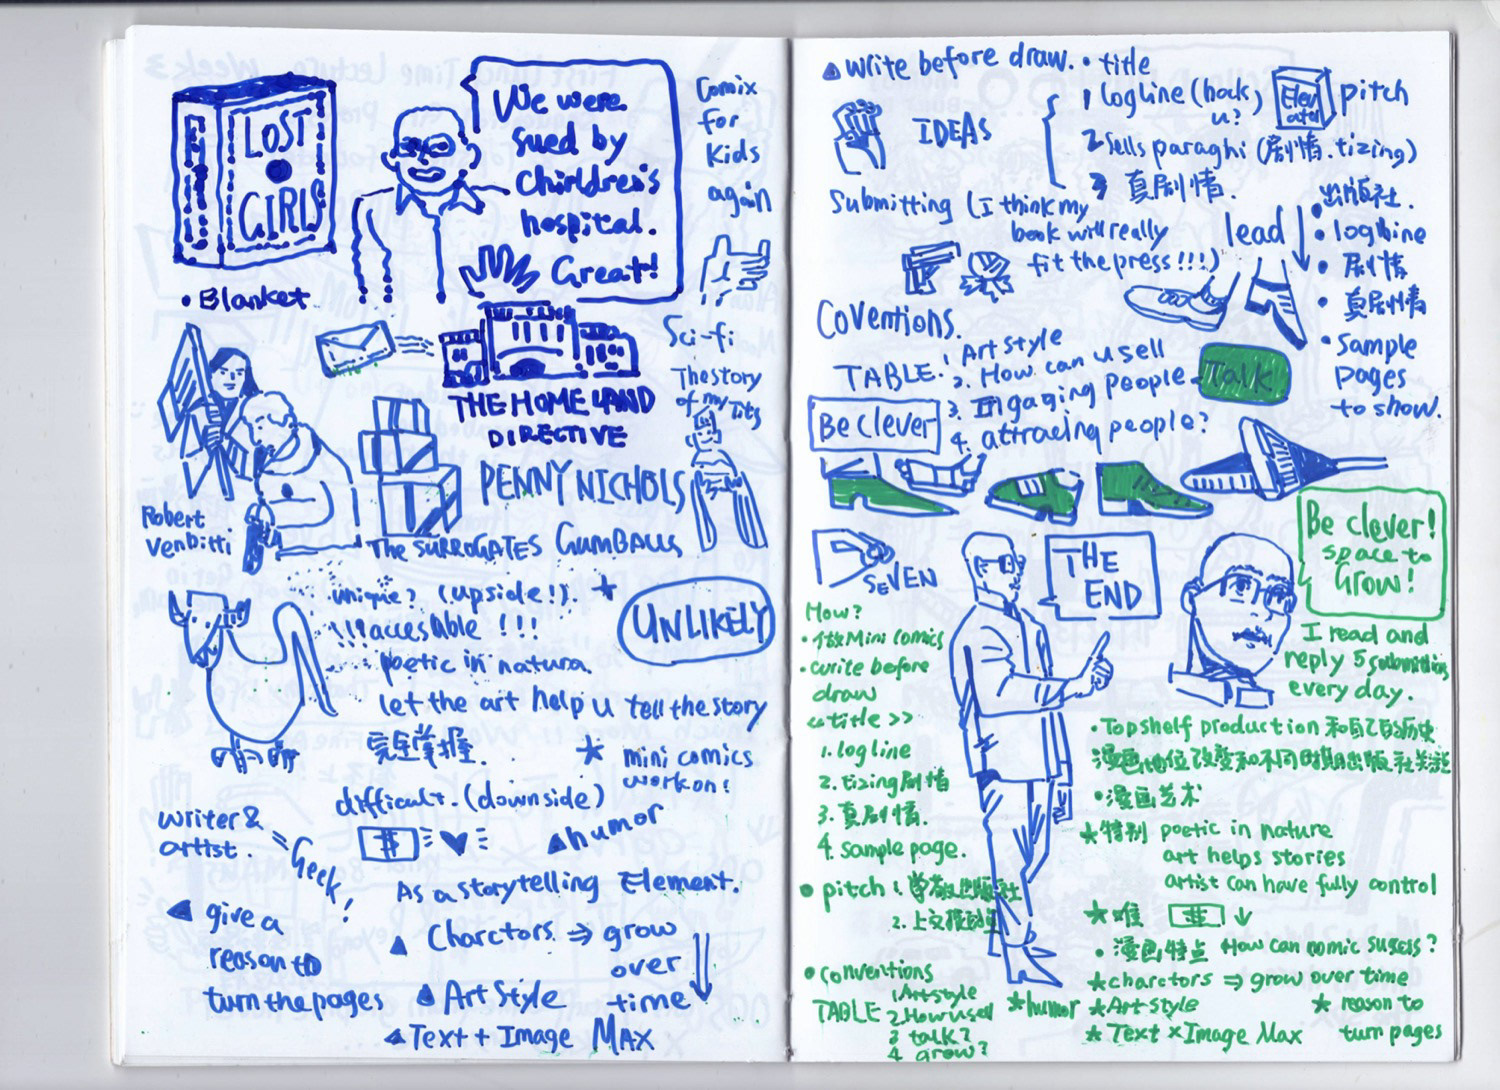 LOST
GIRLS
We were
sued by
Chirldren's
hospital.
Great!
Comix
for
Kids
again
• Blanket
Sci-fi
The story
of my Tits
THE HOME LAND
DIRECTIVE
PENNY NICHOLS
Robert
Venbitti
The SURROGATES GUMBALLS
unique? (upside!). ★
!!! accesable !!!
UNLIKELY
poetic in natura
let the art help u tell the story
完全掌握.
★ mini comics
work on!
difficult. (downside)
writer &
artist.
= Geek!
▲ humor
As a storytelling Element.
◀ give a
reason to
turn the pages
▲ Charctors ⇒ grow
over
time
▲ Art Style
▲ Text + Image MAX
▲ write before draw. • title
IDEAS
1 logline (hook u?)
Elevator
pitch
2 sells paraghi (剧情. tizing)
3 真剧情.
Submitting (I think my
book will really
fit the press!!!)
lead
• 出版社.
• logline
• 剧情
• 真剧情
• Sample
pages
to show.
Coventions.
TABLE. 1. Art style
2. How can u sell
3. Ingaging people
4. attracing people?
Talk
Be clever
SEVEN
THE
END
Be clever!
space to
Grow!
I read and
reply 5 submittios
every day.
How?
• 做Mini comics
• write before
draw
<<title>>
1. log line
2. tizing剧情
3. 真剧情.
4. sample page.
• pitch 1.
2.
• conventions
TABLE 1. Art style
2. How u sell
3 talk?
4 grow?
• Topshelf production 和自己的历史
漫画地位改变和不同时期出版社关注
• 漫画艺术
★ 特别 poetic in nature
art helps stories
artist can have fully control
★ 难 $ ↓
• 漫画特点 How can comic sucess?
★ charctors ⇒ grow over time
★ humor ★ Art style
★ reason to
turn pages
★ Text × Image Max